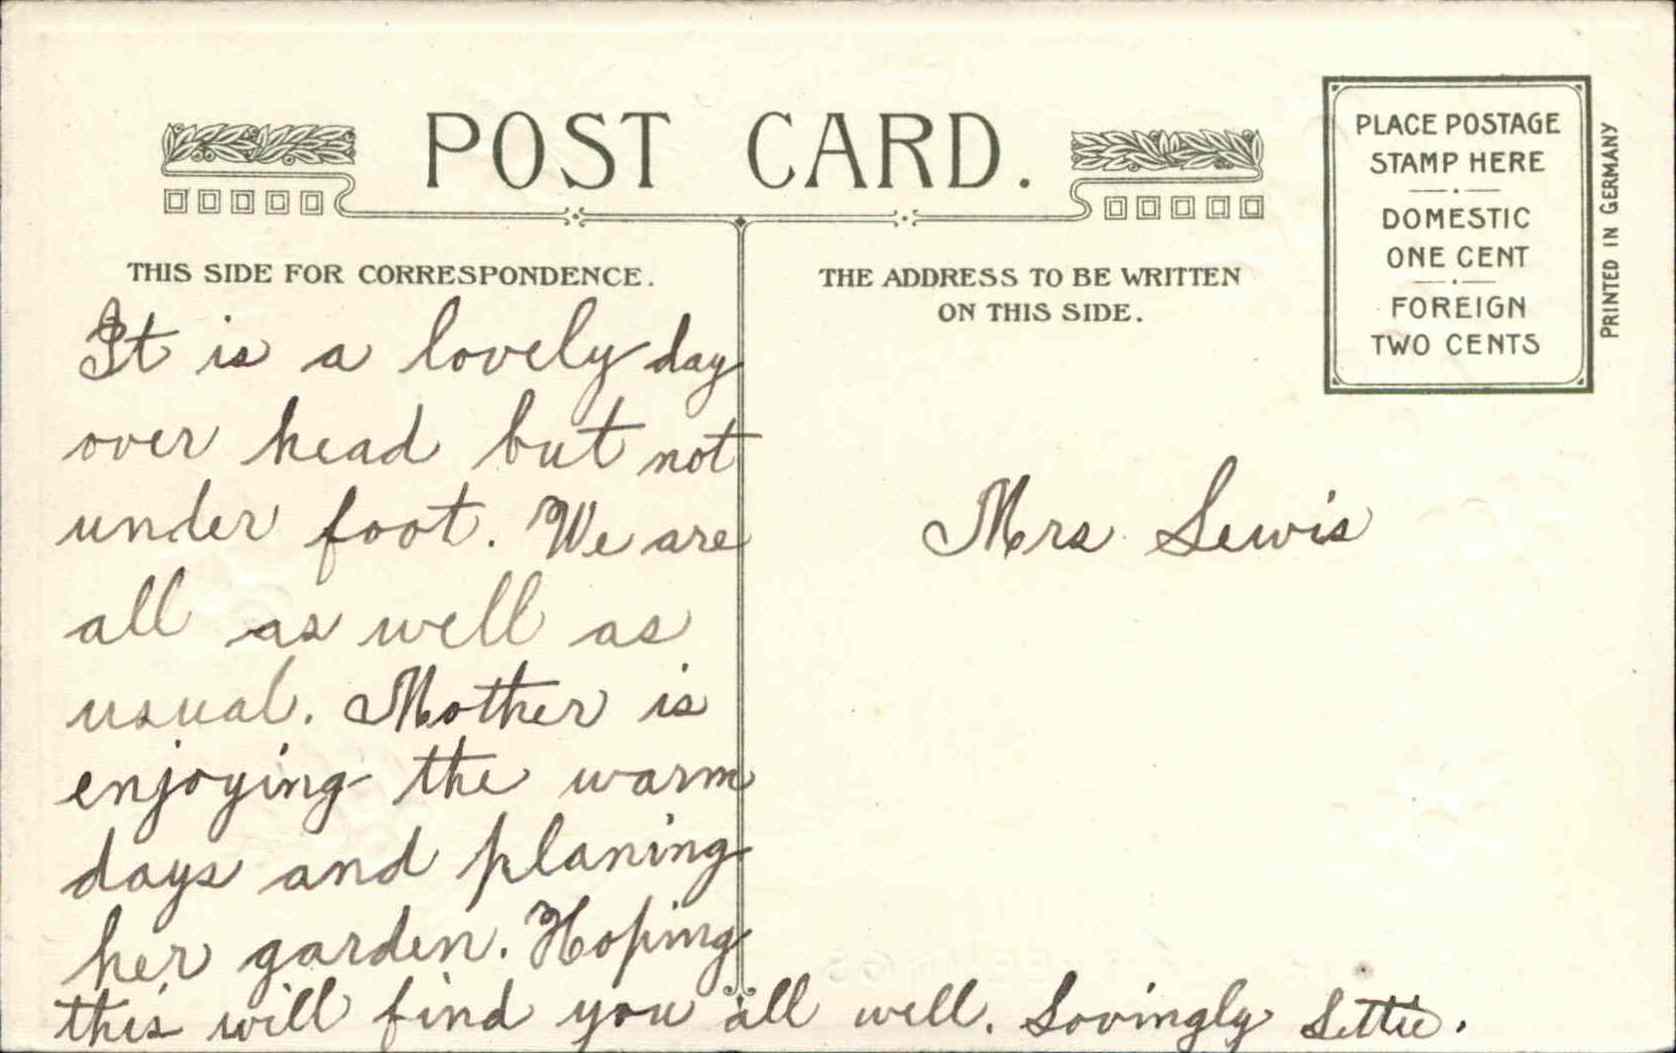 POST CARD.
PLACE POSTAGE
STAMP HERE
DOMESTIC
ONE CENT
FOREIGN
TWO CENTS
PRINTED IN GERMANY
THIS SIDE FOR CORRESPONDENCE.
THE ADDRESS TO BE WRITTEN
ON THIS SIDE.
It is a lovely day
over head but not
under foot. We are
all as well as
usual. Mother is
enjoying the warm
days and planing
her garden. Hoping
this will find you all well. Lovingly Lettie.
Mrs Lewis